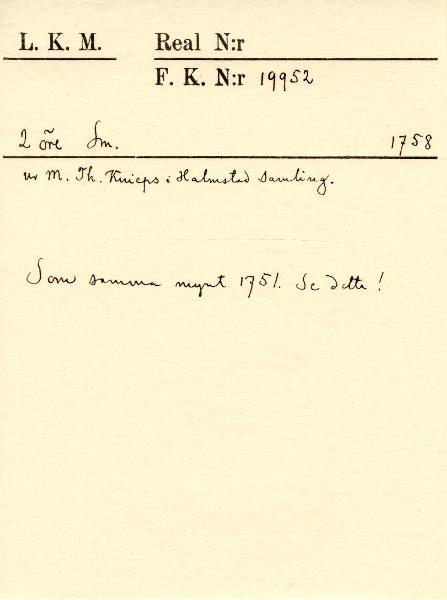 L. K. M. Real N:r
F. K. N:r 19952
2 öre Sm. 1758
ur M. Th. Knieps i Halmstad samling.
Som samma mynt 1751. Se detta!